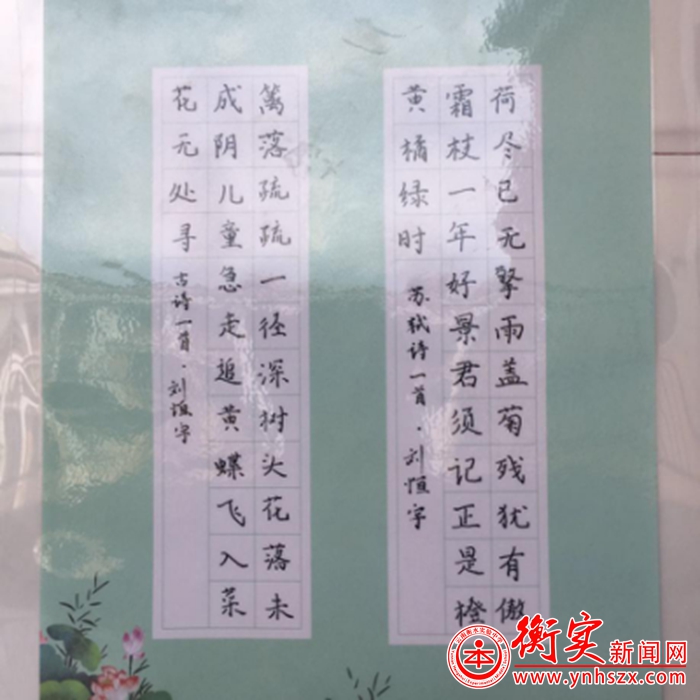 荷尽已无擎雨盖菊残犹有傲
霜枝一年好景君须记正是橙
黄橘绿时
苏轼诗一首·刘恒宇
篱落疏疏一径深树头花落未
成阴儿童急走追黄蝶飞入菜
花无处寻
古诗一首·刘恒宇
衡实新闻网
www.ynhszx.com